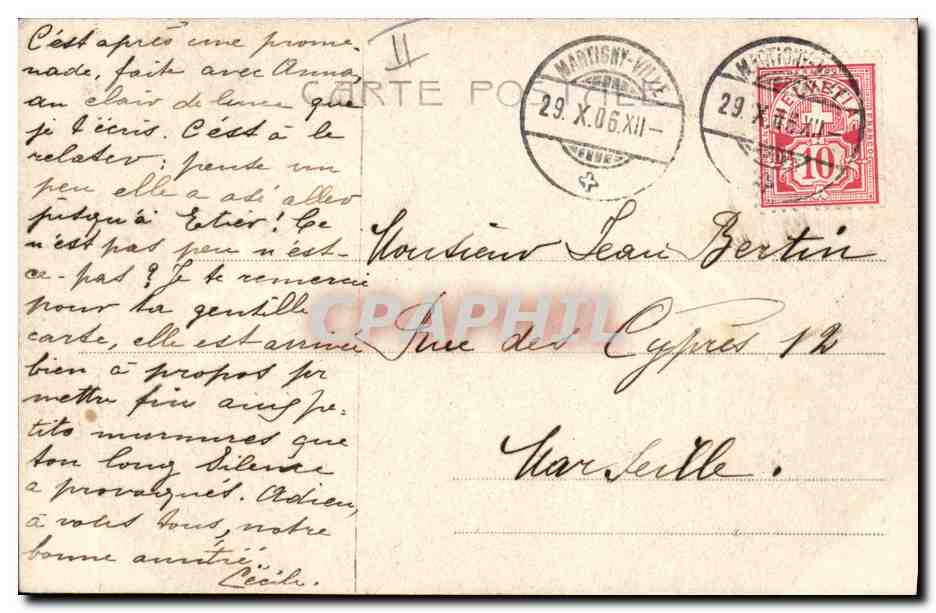 C'est après une prome-
nade, faite avec Anna,
au clair de lune que
je t'écris. C'est à le
relater; pense un
peu elle a osé aller
jusqu'à Etier! Ce
n'est pas peu n'est-
ce-pas? Je te remercie
pour ta gentille
carte, elle est arrivée
bien à propos pr
mettre fin aux pe-
tits murmures que
ton long silence
a provoqués. Adieu,
à vous tous, notre
bonne amitié.
Cécile.
II
CARTE POSTALE
MARTIGNY-VILLE
29.X.06.XII-
MARTIGNY-VILLE
29.X.06.XII-
HELVETIA
FRANCO
10
Monsieur Jean Bertin
Rue des Cyprès 12
Marseille.
CPAPHIL